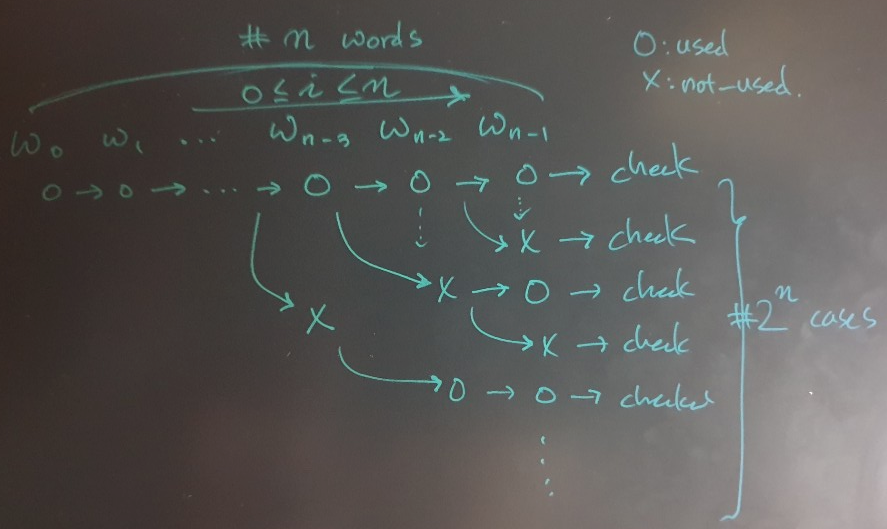 # n words
O : used
X : not-used.
0 ≤ i ≤ n
W₀ W₁ ... Wn-3 Wn-2 Wn-1
O → O → ... → O → O → O → check
X → check
X → O → check
X
X → check
#2ⁿ cases
O → O → checked